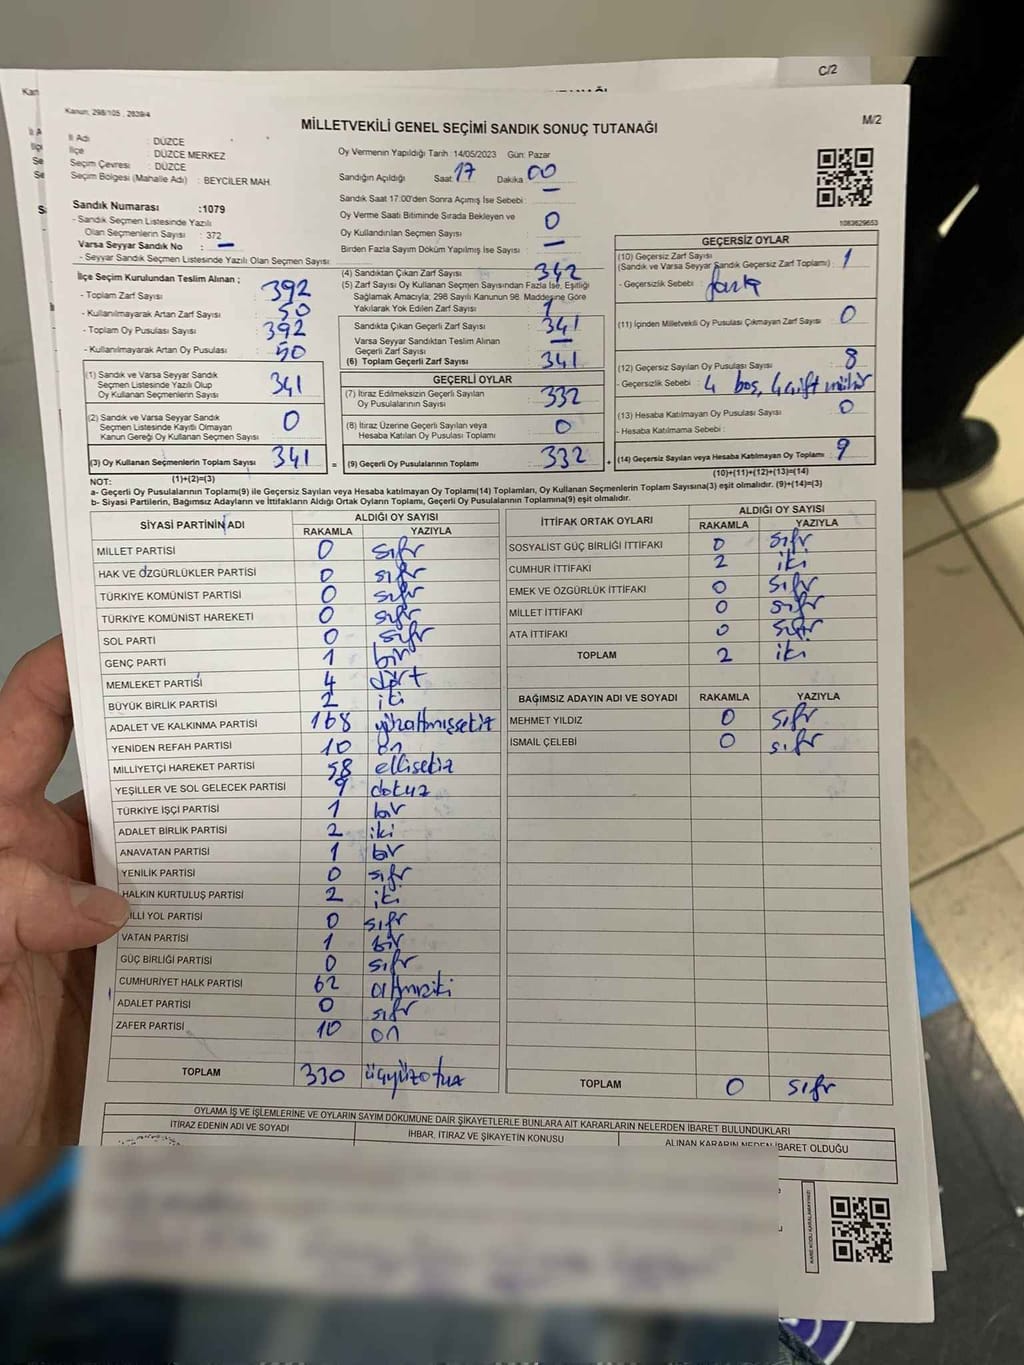 C/2
Kanun, 298/105 , 2839/4
M/2
MİLLETVEKİLİ GENEL SEÇİMİ SANDIK SONUÇ TUTANAĞI
İl Adı : DÜZCE
İlçe : DÜZCE MERKEZ
Seçim Çevresi : DÜZCE
Seçim Bölgesi (Mahalle Adı) : BEYCİLER MAH.
Oy Vermenin Yapıldığı Tarih :14/05/2023 Gün: Pazar
Sandığın Açıldığı Saat 17 Dakika 00
Sandık Saat 17:00'den Sonra Açımış İse Sebebi : –
Oy Verme Saati Bitiminde Sırada Bekleyen ve
Oy Kullandırılan Seçmen Sayısı 0
Birden Fazla Sayım Döküm Yapılmış İse Sayısı –
1083629653
Sandık Numarası :1079
- Sandık Seçmen Listesinde Yazılı
Olan Seçmenlerin Sayısı : 372
Varsa Seyyar Sandık No : –
- Seyyar Sandık Seçmen Listesinde Yazılı Olan Seçmen Sayısı:
İlçe Seçim Kurulundan Teslim Alınan ;
- Toplam Zarf Sayısı 392
- Kullanılmayarak Artan Zarf Sayısı 50
- Toplam Oy Pusulası Sayısı 392
- Kullanılmayarak Artan Oy Pusulası 50
(1) Sandık ve Varsa Seyyar Sandık
Seçmen Listesinde Yazılı Olup
Oy Kullanan Seçmenlerin Sayısı 341
(2) Sandık ve Varsa Seyyar Sandık
Seçmen Listesinde Kayıtlı Olmayan
Kanun Gereği Oy Kullanan Seçmen Sayısı 0
(3) Oy Kullanan Seçmenlerin Toplam Sayısı 341
(1)+(2)=(3)
(4) Sandıktan Çıkan Zarf Sayısı 342
(5) Zarf Sayısı Oy Kullanan Seçmen Sayısından Fazla İse, Eşitliği
Sağlamak Amacıyla; 298 Sayılı Kanunun 98. Maddesine Göre
Yakılarak Yok Edilen Zarf Sayısı 1
Sandıkta Çıkan Geçerli Zarf Sayısı 341
Varsa Seyyar Sandıktan Teslim Alınan
Geçerli Zarf Sayısı –
(6) Toplam Geçerli Zarf Sayısı 341
GEÇERLİ OYLAR
(7) İtiraz Edilmeksizin Geçerli Sayılan
Oy Pusulalarının Sayısı 332
(8) İtiraz Üzerine Geçerli Sayılan veya
Hesaba Katılan Oy Pusulası Toplamı 0
= (9) Geçerli Oy Pusulalarının Toplamı 332 +
GEÇERSİZ OYLAR
(10) Geçersiz Zarf Sayısı
(Sandık ve Varsa Seyyar Sandık Geçersiz Zarf Toplamı) : 1
- Geçersizlik Sebebi :
(11) İçinden Milletvekili Oy Pusulası Çıkmayan Zarf Sayısı 0
(12) Geçersiz Sayılan Oy Pusulası Sayısı 8
- Geçersizlik Sebebi : 4 boş, 4 çift mühür
(13) Hesaba Katılmayan Oy Pusulası Sayısı 0
- Hesaba Katılmama Sebebi :
(14) Geçersiz Sayılan veya Hesaba Katılmayan Oy Toplamı 9
(10)+(11)+(12)+(13)=(14)
NOT:
a- Geçerli Oy Pusulalarının Toplamı(9) ile Geçersiz Sayılan veya Hesaba katılmayan Oy Toplamı(14) Toplamları, Oy Kullanan Seçmenlerin Toplam Sayısına(3) eşit olmalıdır. (9)+(14)=(3)
b- Siyasi Partilerin, Bağımsız Adayların ve İttifakların Aldığı Ortak Oyların Toplamı, Geçerli Oy Pusulalarının Toplamına(9) eşit olmalıdır.
SİYASİ PARTİNİN ADI ALDIĞI OY SAYISI
RAKAMLA YAZIYLA
MİLLET PARTİSİ 0 sıfır
HAK VE ÖZGÜRLÜKLER PARTİSİ 0 sıfır
TÜRKİYE KOMÜNİST PARTİSİ 0 sıfır
TÜRKİYE KOMÜNİST HAREKETİ 0 sıfır
SOL PARTİ 0 sıfır
GENÇ PARTİ 1 bir
MEMLEKET PARTİSİ 4 dört
BÜYÜK BİRLİK PARTİSİ 2 iki
ADALET VE KALKINMA PARTİSİ 168 yüzaltmışsekiz
YENİDEN REFAH PARTİSİ 10 on
MİLLİYETÇİ HAREKET PARTİSİ 58 ellisekiz
YEŞİLLER VE SOL GELECEK PARTİSİ 9 dokuz
TÜRKİYE İŞÇİ PARTİSİ 1 bir
ADALET BİRLİK PARTİSİ 2 iki
ANAVATAN PARTİSİ 1 bir
YENİLİK PARTİSİ 0 sıfır
HALKIN KURTULUŞ PARTİSİ 2 iki
İLLİ YOL PARTİSİ 0 sıfır
VATAN PARTİSİ 1 bir
GÜÇ BİRLİĞİ PARTİSİ 0 sıfır
CUMHURİYET HALK PARTİSİ 62 altmışiki
ADALET PARTİSİ 0 sıfır
ZAFER PARTİSİ 10 on
TOPLAM 330 üçyüzotuz
İTTİFAK ORTAK OYLARI ALDIĞI OY SAYISI
RAKAMLA YAZIYLA
SOSYALİST GÜÇ BİRLİĞİ İTTİFAKI 0 sıfır
CUMHUR İTTİFAKI 2 iki
EMEK VE ÖZGÜRLÜK İTTİFAKI 0 sıfır
MİLLET İTTİFAKI 0 sıfır
ATA İTTİFAKI 0 sıfır
TOPLAM 2 iki
BAĞIMSIZ ADAYIN ADI VE SOYADI RAKAMLA YAZIYLA
MEHMET YILDIZ 0 sıfır
İSMAİL ÇELEBİ 0 sıfır
TOPLAM 0 sıfır
OYLAMA İŞ VE İŞLEMLERİNE VE OYLARIN SAYIM DÖKÜMÜNE DAİR ŞİKAYETLERLE BUNLARA AİT KARARLARIN NELERDEN İBARET BULUNDUKLARI
İTİRAZ EDENİN ADI VE SOYADI İHBAR, İTİRAZ VE ŞİKAYETİN KONUSU ALINAN KARARIN NEDEN İBARET OLDUĞU